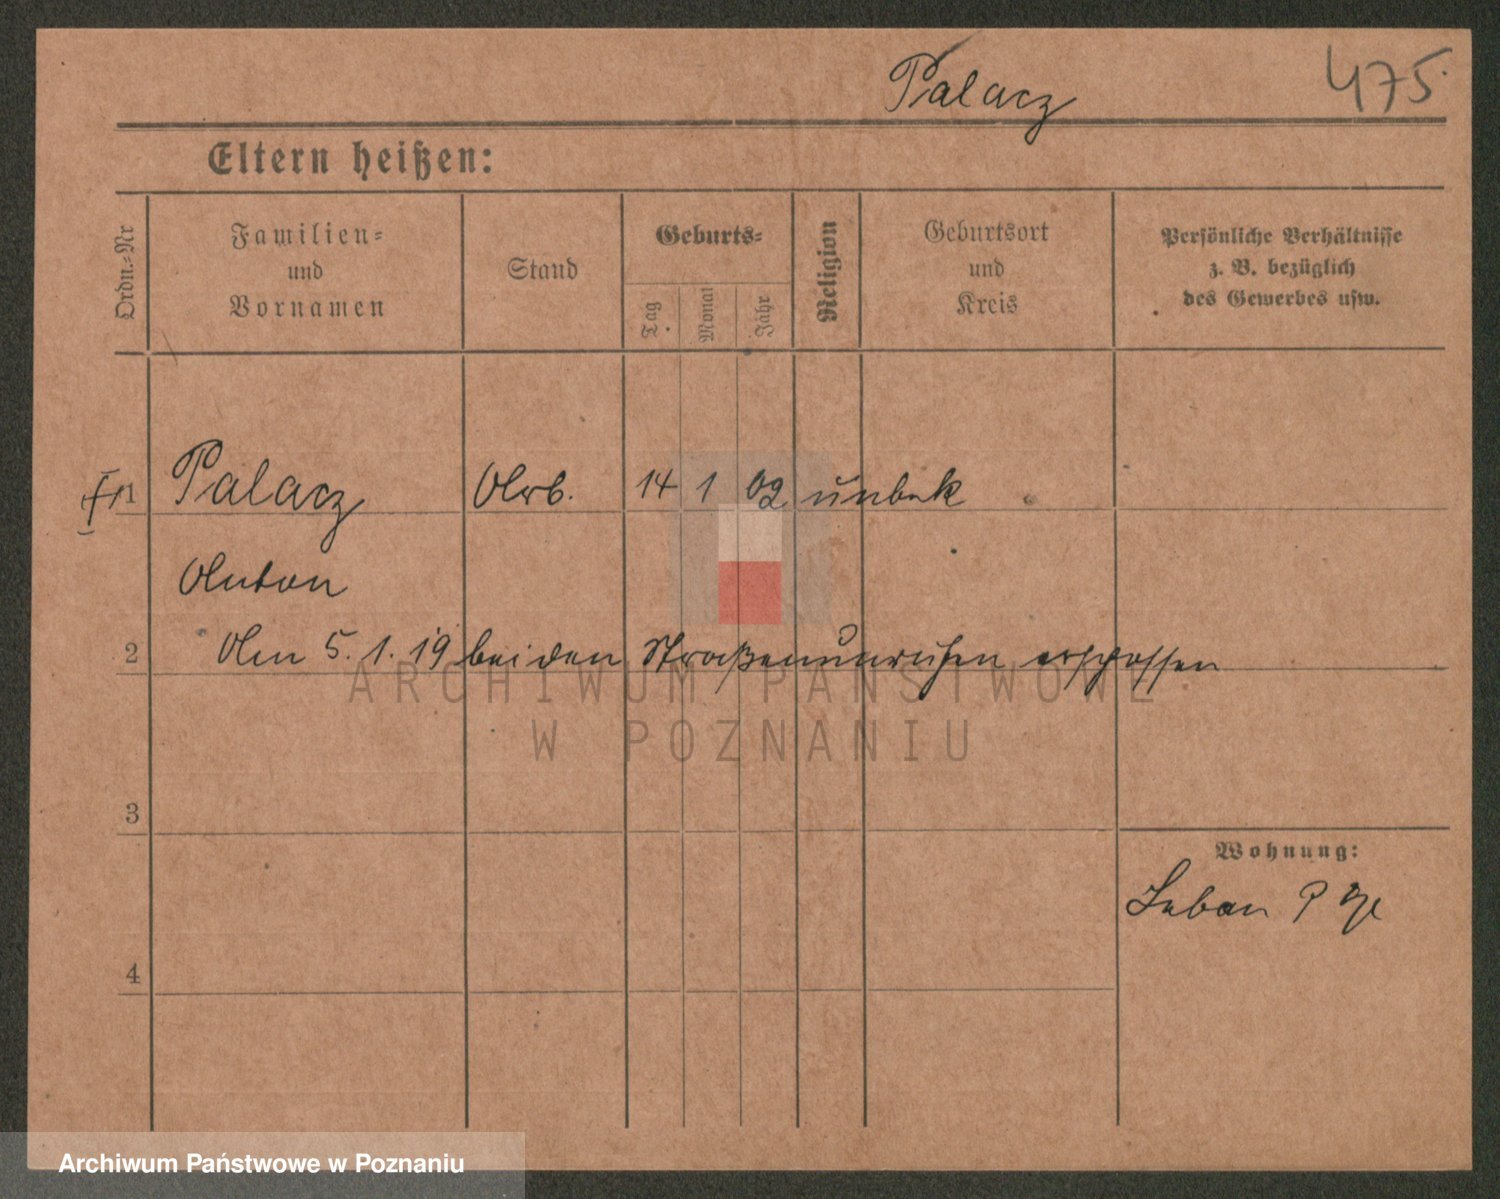 Palacz 475.
Eltern heißen:
Ordn.-Nr
Familien- und Vornamen
Stand
Geburts-
Tag
Monat
Jahr
Religion
Geburtsort und Kreis
Persönliche Verhältnisse
z. B. bezüglich
des Gewerbes usw.
1 Palacz Arb. 14 1 02 unbek
Anton
2 Am 5. 1. 19 bei den Straßenunruhen erschossen
ARCHIWUM PAŃSTWOWE
W POZNANIU
3
Wohnung:
4
Archiwum Państwowe w Poznaniu